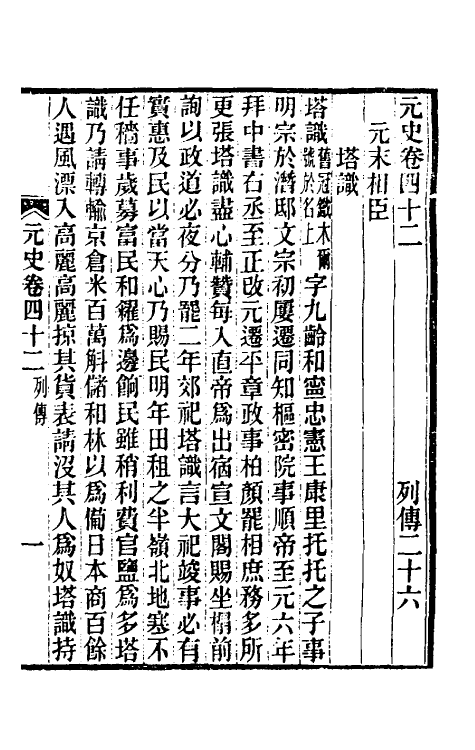 元史卷四十二 列傳二十六
元末相臣
塔識
塔識舊冠鐵木爾號於名上字九齡和寧忠憲王康里托托之子事
明宗於潛邸文宗初屢遷同知樞密院事順帝至元六年
拜中書右丞至正改元遷平章政事柏顏罷相庶務多所
更張塔識盡心輔贊每入直帝爲出宿宣文閣賜坐榻前
詢以政道必夜分乃罷二年郊祀塔識言大祀竣事必有
實惠及民以當天心乃賜民明年田租之半嶺北地寒不
任穡事歲募富民和糴爲邊餉民雖稍利費官鹽爲多塔
識乃請轉輸京倉米百萬斛儲和林以爲備日本商百餘
人遇風漂入高麗高麗掠其貨表請沒其人爲奴塔識持
元史卷四十二 列傳 一